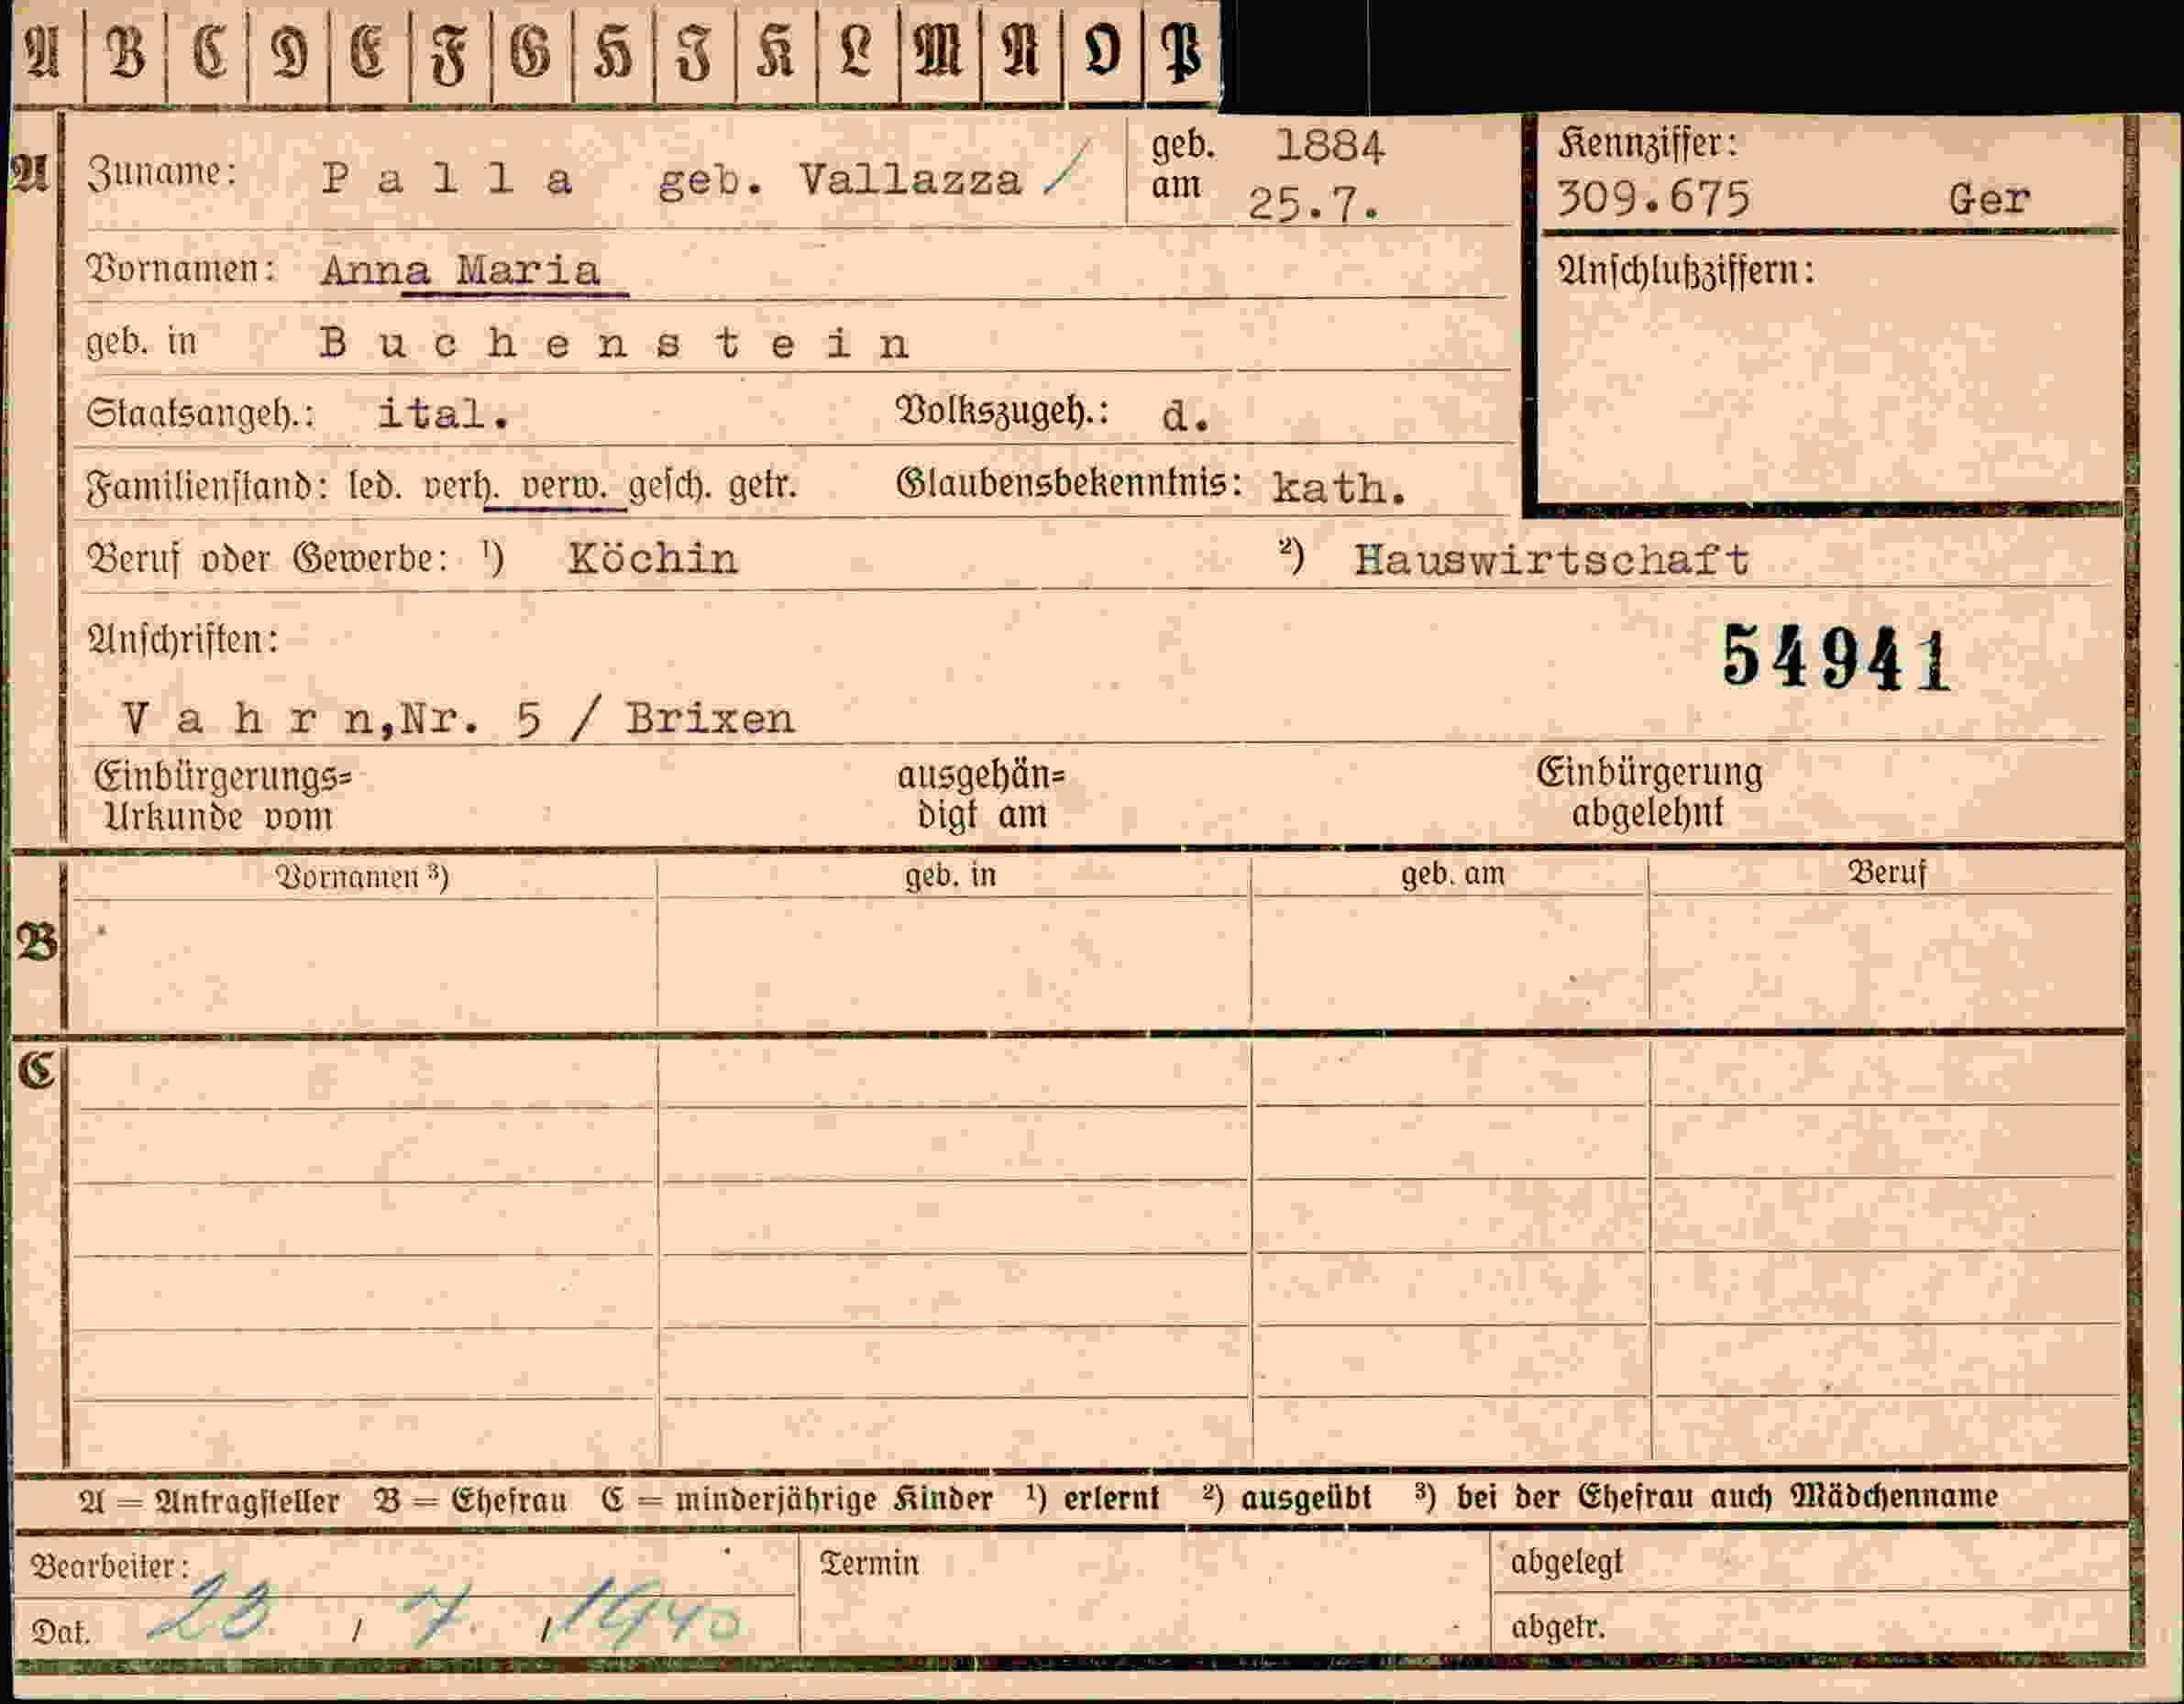 A B C D E F G H I K L M N O P
A Zuname: Palla geb. Vallazza / geb. am 1884 25.7. Kennziffer: 309.675 Ger
Vornamen: Anna Maria Anschlußziffern:
geb. in Buchenstein
Staatsangeh.: ital. Volkszugeh.: d.
Familienstand: led. verh. verw. gesch. getr. Glaubensbekenntnis: kath.
Beruf oder Gewerbe: ¹) Köchin ²) Hauswirtschaft
Anschriften: 54941
Vahrn,Nr. 5 / Brixen
Einbürgerungs= ausgehän= Einbürgerung
Urkunde vom digt am abgelehnt
Vornamen ³) geb. in geb. am Beruf
B
C
A = Antragsteller B = Ehefrau C = minderjährige Kinder ¹) erlernt ²) ausgeübt ³) bei der Ehefrau auch Mädchenname
Bearbeiter: Termin abgelegt
Dat. 23 / 7. / 1940 abgetr.